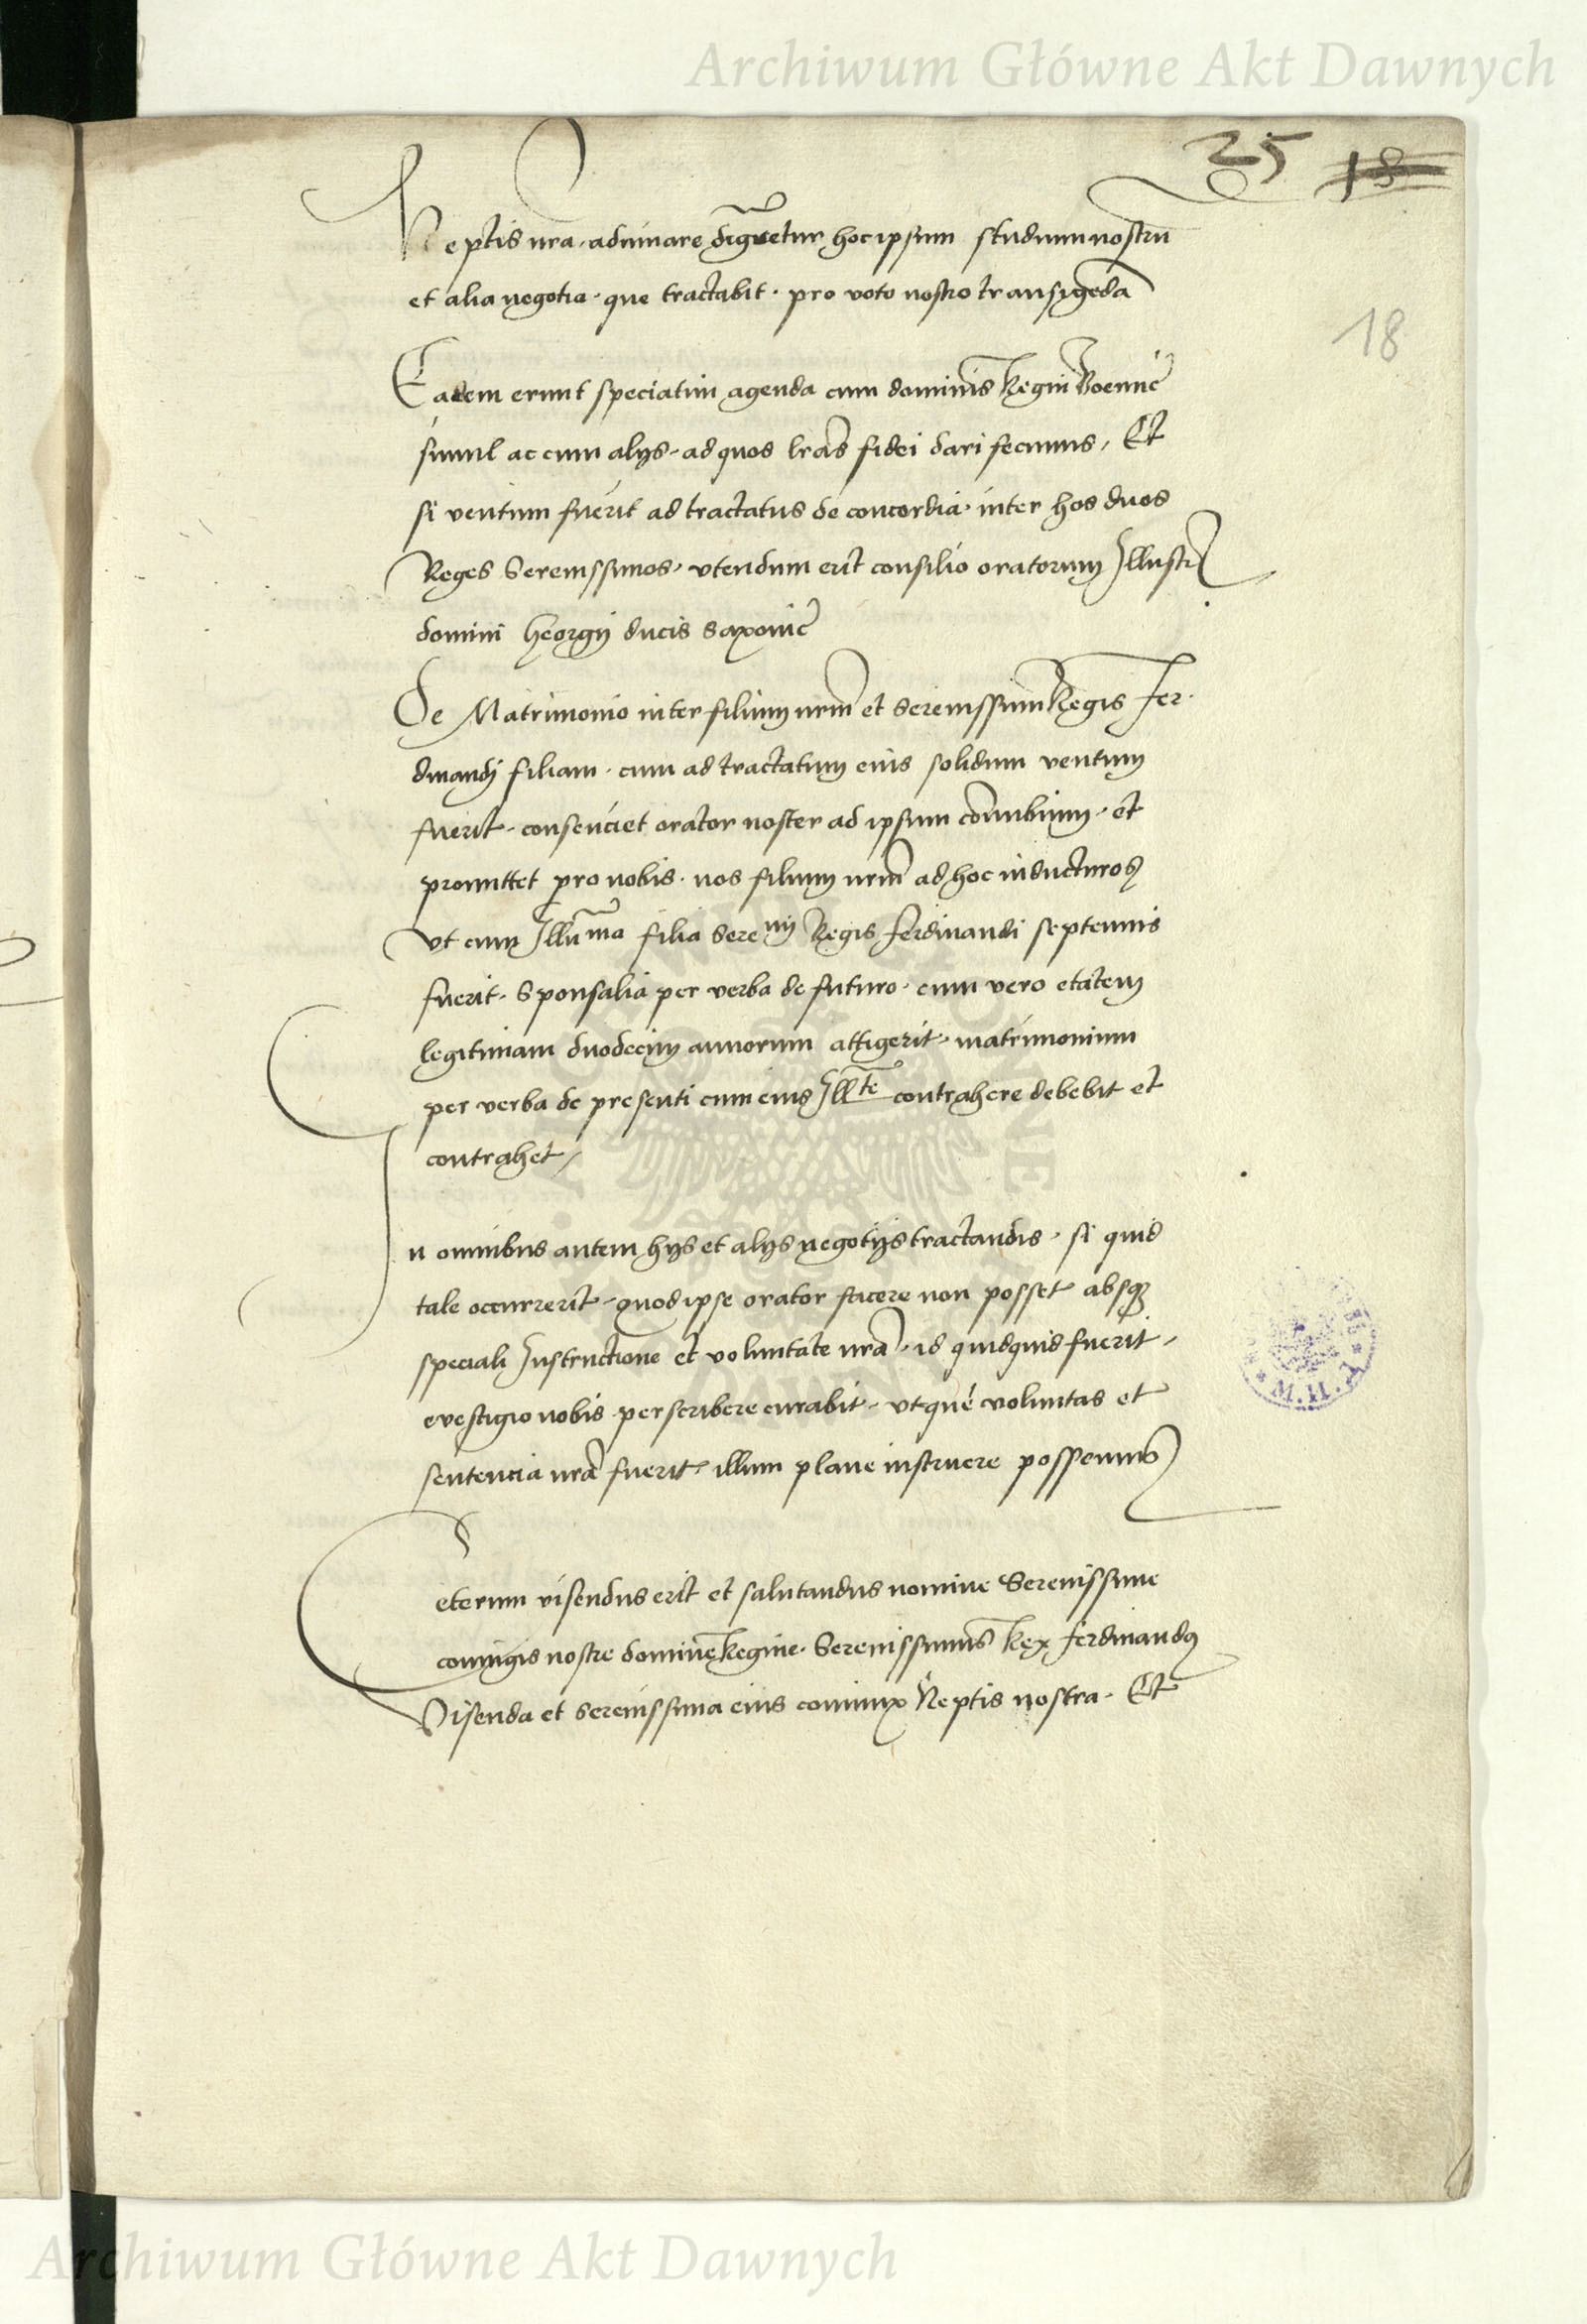 Archiwum Główne Akt Dawnych
25 18
Neptis nra, adiuuare dignetur hoc ipsum studium nostru
et alia negotia, que tractabit, pro voto nostro transigeda
18
Eadem erunt speciatim agenda cum dominis Regni Boemie
simul ac cum alijs, ad quos lras fidei dari fecimus, Et
si ventum fuerit ad tractatus de concordia, inter hos duos
Reges Serenissimos, vtendum erit consilio oratorum Illustris
domini Georgij ducis Saxonie
De Matrimonio inter filium nrm et Serenissimi Regis Fer-
dinandj filiam, cum ad tractatum eius solidum ventum
fuerit, consenciet orator noster ad ipsum connubium, et
promittet pro nobis, nos filium nrm ad hoc inducturos
Vt cum Illuma filia Serenmi Regis Ferdinandi septennis
fuerit, Sponsalia per verba de futuro, cum vero etatem
legitimam duodecim annorum attigerit, matrimonium
per verba de presenti cum eius Illte contrahere debebit et
contrahet /
In omnibus autem hijs et alijs negotijs tractandis, si quid
tale occurrerit, quod ipse orator facere non posset absq
speciali Instructione et voluntate nra, id quidquid fuerit,
evestigio nobis perscribere curabit, vt que voluntas et
sentencia nra fuerit, illum plane instruere possemus
Ceterum visendus erit et salutandus nomine Serenissime
coniugis nostre domine Regine, Serenissimus Rex Ferdinandus
Visenda et Serenissima eius coniunx Neptis nostra, Et
Archiwum Główne Akt Dawnych